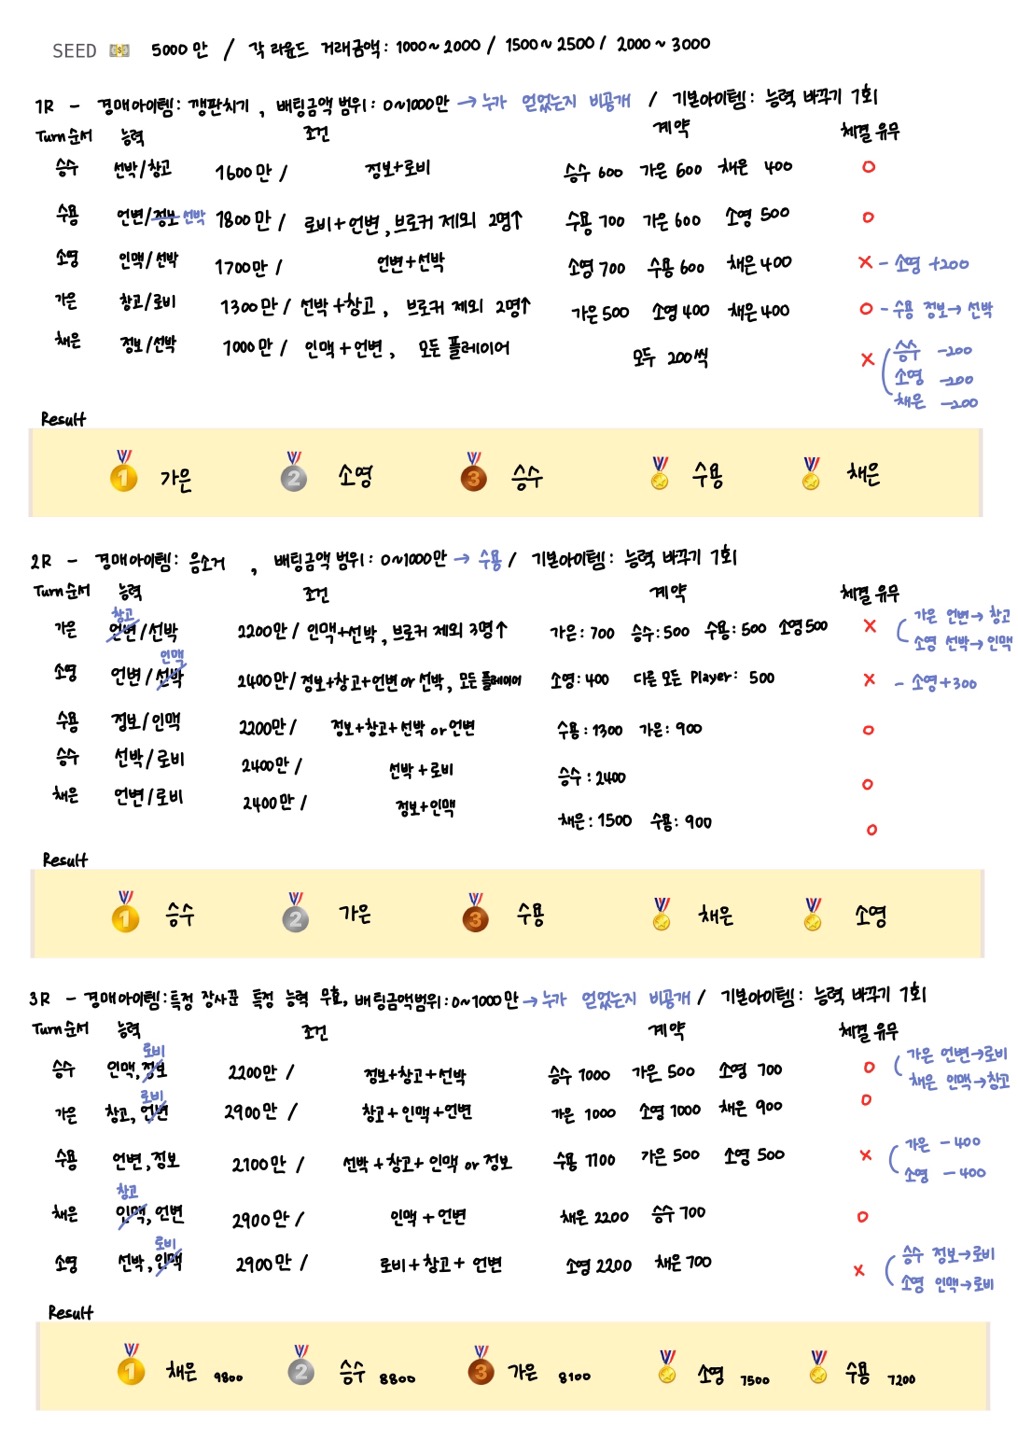 SEED 5000만 / 각 라운드 거래금액: 1000~2000 / 1500~2500 / 2000~3000
1R - 경매아이템: 깽판치기, 배팅금액 범위: 0~1000만 → 누가 얻었는지 비공개 / 기본아이템: 능력 바꾸기 1회
Turn순서 능력 조건 계약 체결 유무
승수 선박/창고 1600만 / 정보+로비 승수 600 가은 600 채은 400 O
수용 언변/정보 선박 1800만 / 로비+언변, 브로커 제외 2명↑ 수용 700 가은 600 소영 500 O
소영 인맥/선박 1700만 / 언변+선박 소영 700 수용 600 채은 400 X - 소영 +200
가은 창고/로비 1300만 / 선박+창고, 브로커 제외 2명↑ 가은 500 소영 400 채은 400 O - 수용 정보→ 선박
채은 정보/선박 1000만 / 인맥+언변, 모든 플레이어 모두 200씩 X 승수 -200
소영 -200
채은 -200
Result
1 가은 2 소영 3 승수 수용 채은
2R - 경매아이템: 음소거, 배팅금액 범위: 0~1000만 → 수용 / 기본아이템: 능력 바꾸기 1회
Turn순서 능력 조건 계약 체결 유무
창고
가은 언변/선박 2200만 / 인맥+선박, 브로커 제외 3명↑ 가은: 700 승수: 500 수용: 500 소영 500 X 가은 언변→ 창고
소영 선박→ 인맥
인맥
소영 언변/선박 2400만 / 정보+창고+언변 or 선박, 모든 플레이어 소영: 400 다른 모든 Player: 500 X - 소영+300
수용 정보/인맥 2200만 / 정보+창고+선박 or 언변 수용: 1300 가은: 900 O
승수 선박/로비 2400만 / 선박+로비 승수: 2400 O
채은 언변/로비 2400만 / 정보+인맥 채은: 1500 수용: 900 O
Result
1 승수 2 가은 3 수용 채은 소영
3R - 경매아이템: 특정 장사꾼 특정 능력 무효, 배팅금액범위: 0~1000만 → 누가 얻었는지 비공개 / 기본아이템: 능력 바꾸기 1회
Turn순서 능력 조건 계약 체결 유무
로비
승수 인맥, 정보 2200만 / 정보+창고+선박 승수 1000 가은 500 소영 700 O 가은 언변→로비
채은 인맥→창고
로비
가은 창고, 언변 2900만 / 창고+인맥+언변 가은 1000 소영 1000 채은 900 O
수용 언변, 정보 2100만 / 선박+창고+인맥 or 정보 수용 1100 가은 500 소영 500 X 가은 -400
소영 -400
창고
채은 인맥, 언변 2900만 / 인맥+언변 채은 2200 승수 700 O
로비
소영 선박, 인맥 2900만 / 로비+창고+언변 소영 2200 채은 700 X 승수 정보→로비
소영 인맥→로비
Result
1 채은 9800 2 승수 8800 3 가은 8100 소영 7500 수용 7200